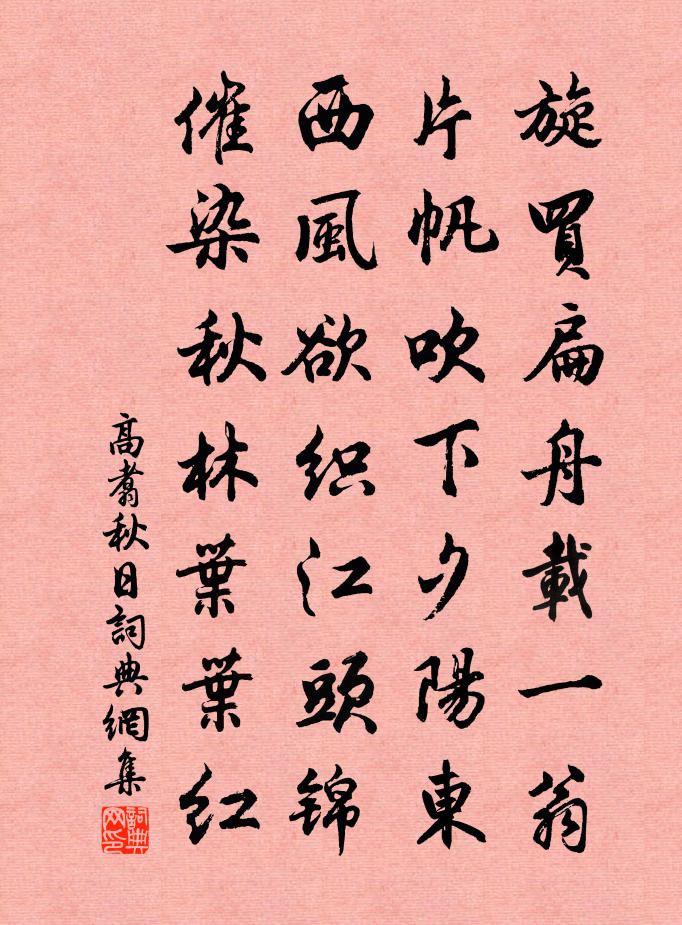 旋買扁舟載一翁
片帆吹下夕陽東
西風欲织江頭锦
催染秋林葉葉红
高翥秋日詞典網集
詞典
网印